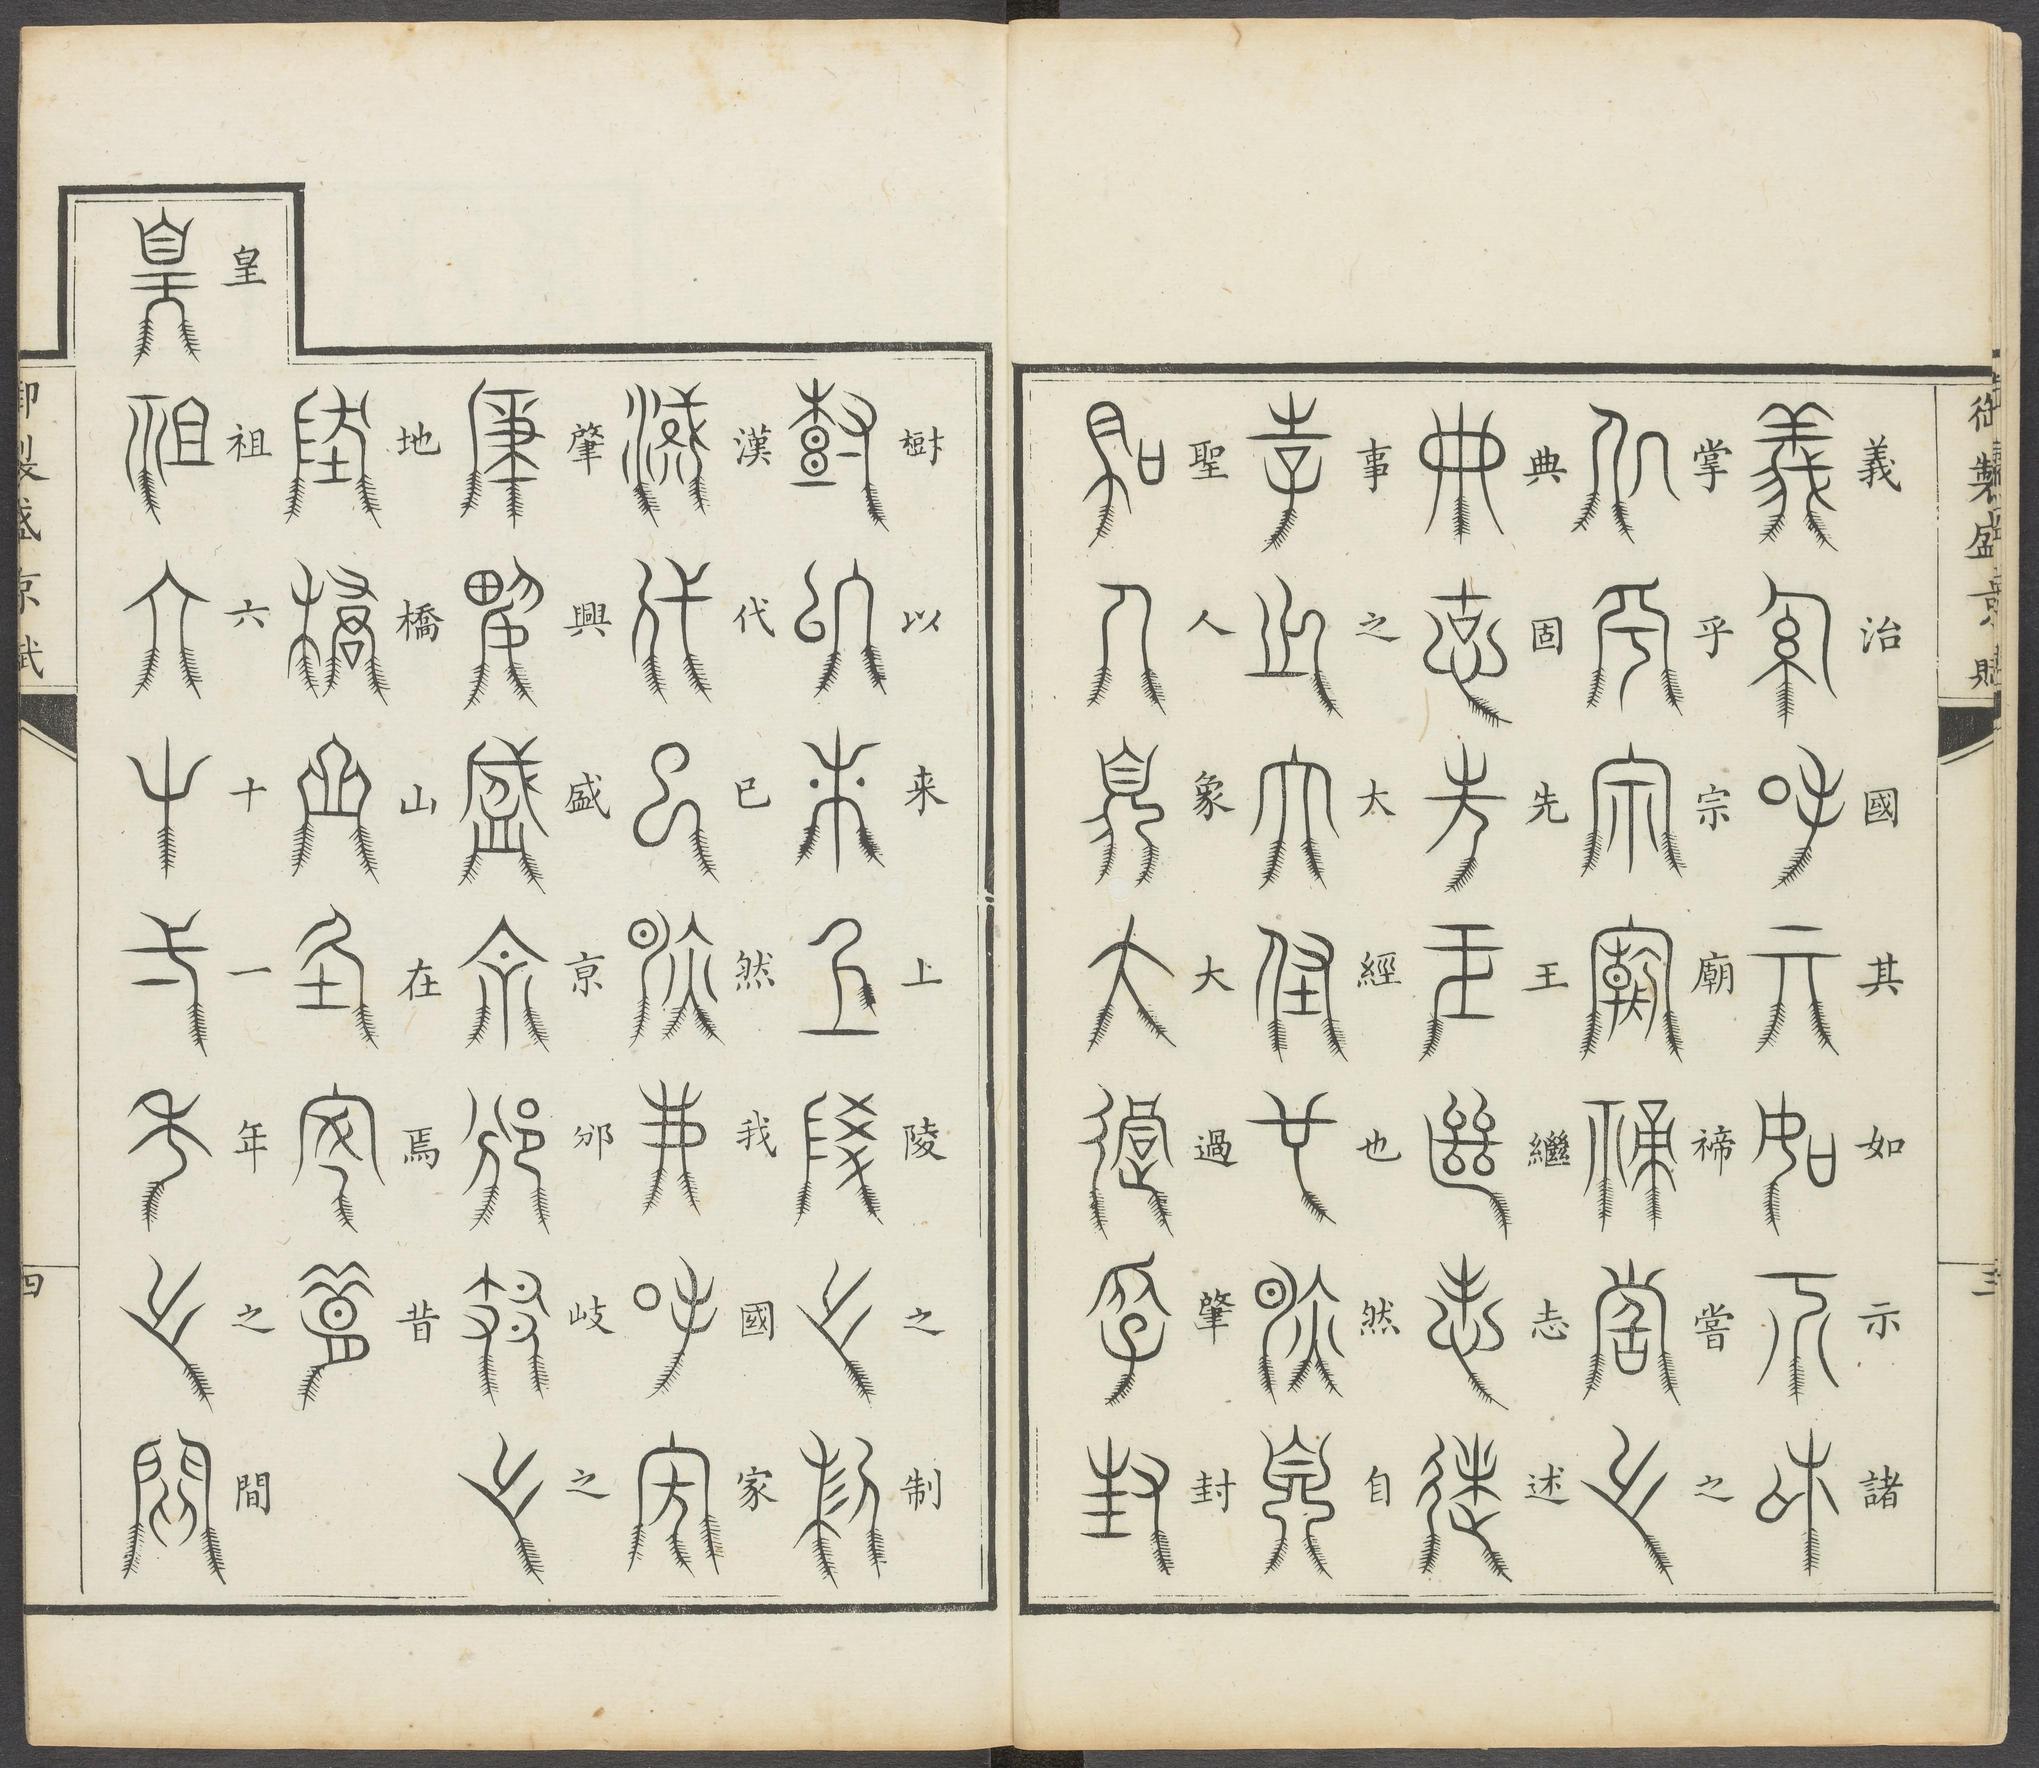 御製盛京賦
三
義治國其如示諸
掌乎宗廟禘嘗之
典固先王繼志述
事之太經也然自
聖人象大過肇封
樹以来上陵之制
漢代已然我國家
肇興盛京邠岐之
地橋山在焉昔
皇祖六十一年之間
御製盛京賦
四